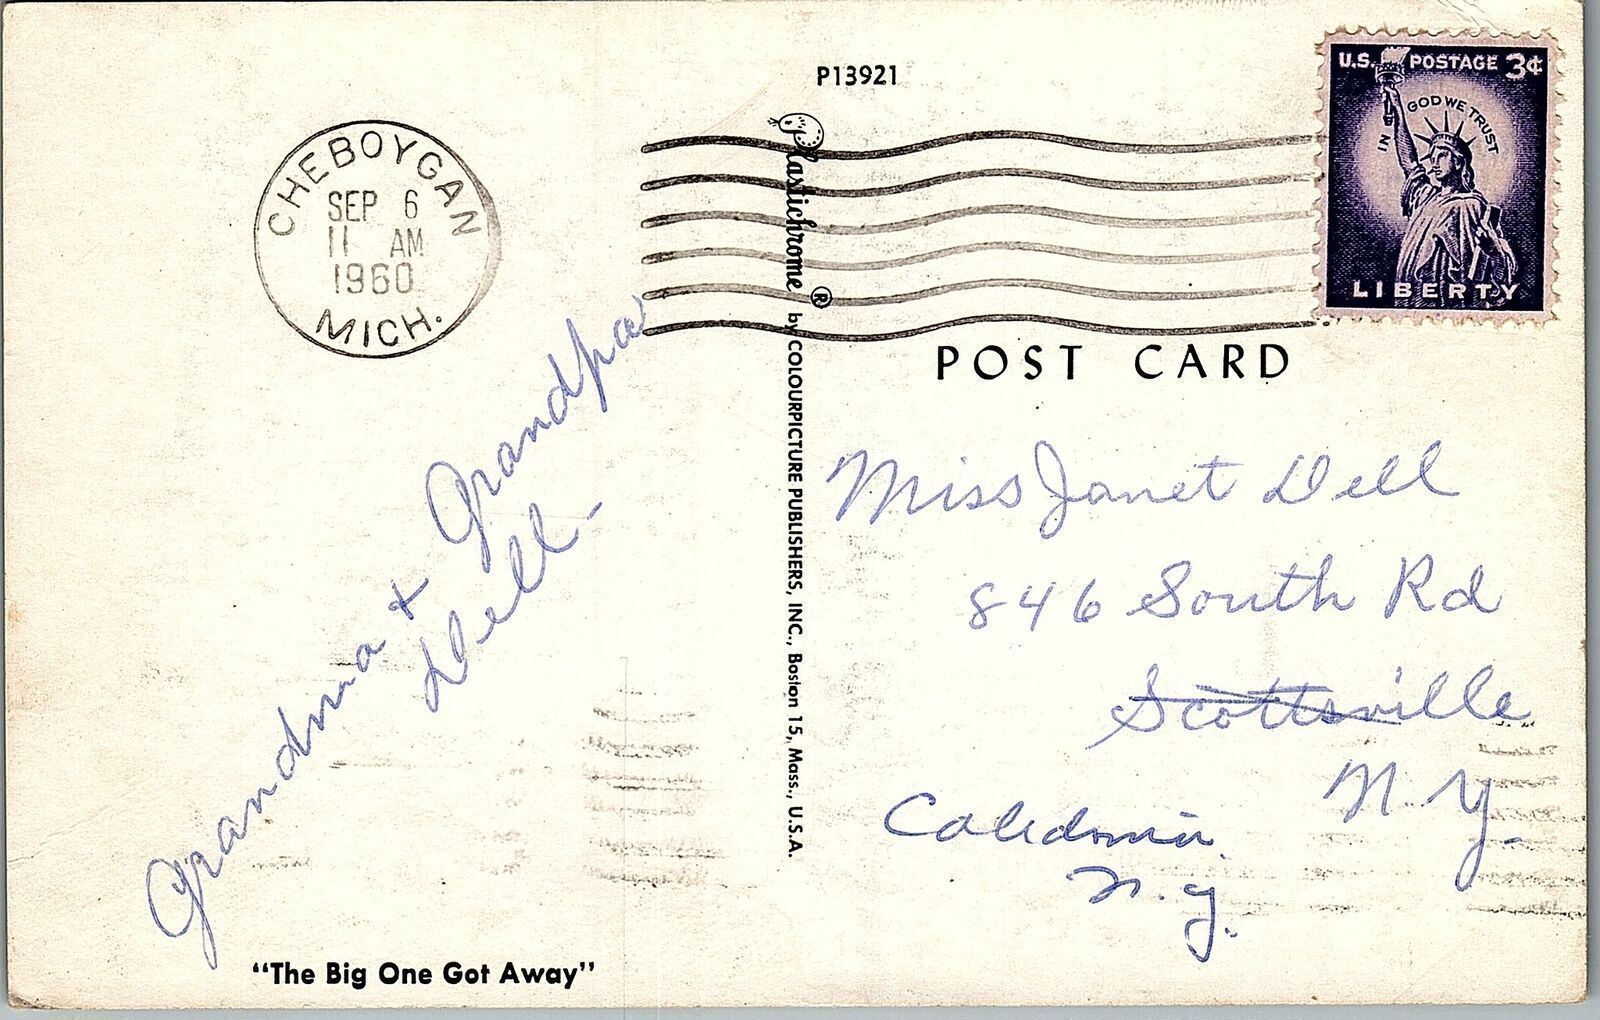 P13921
CHEBOYGAN
SEP 6
11 AM
1960
MICH.
U.S. POSTAGE 3¢
IN GOD WE TRUST
LIBERTY
Plastichrome ® by COLOURPICTURE PUBLISHERS, INC., Boston 15, Mass., U.S.A.
POST CARD
Grandma + Grandpa
Dell-
Miss Janet Dell
846 South Rd
Scottsville
N.Y.
Caledonia
N.Y.
"The Big One Got Away"